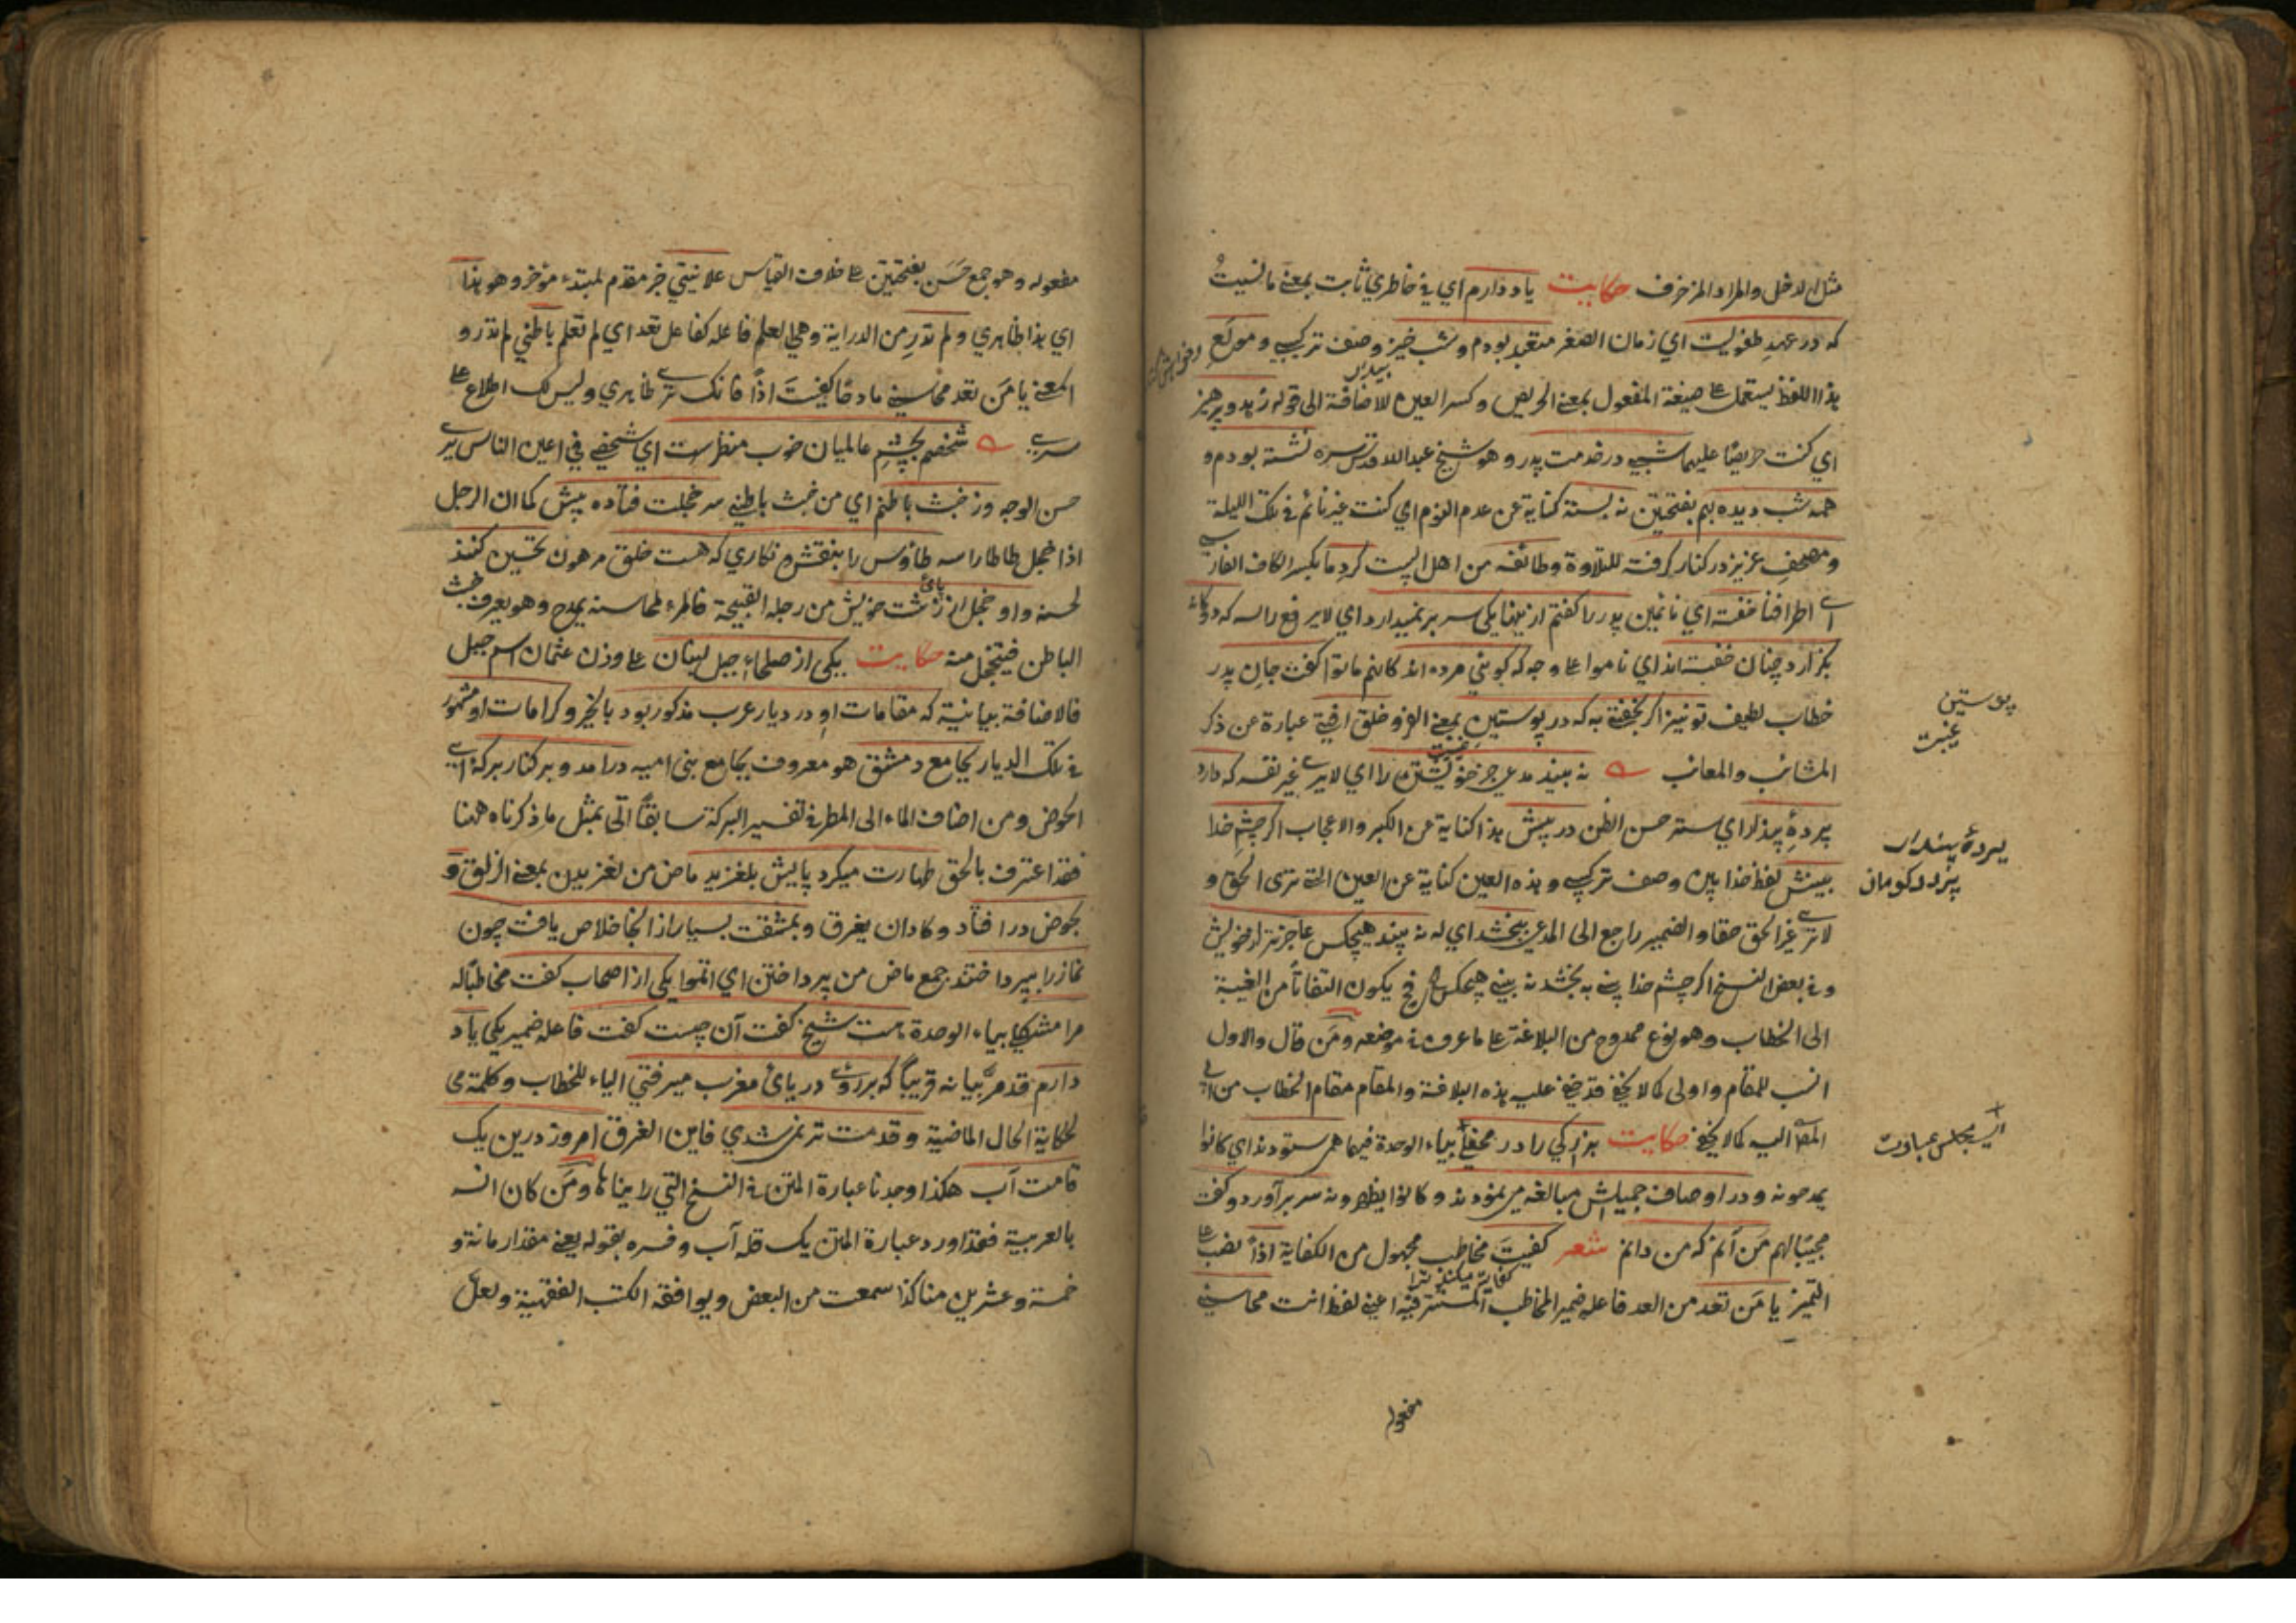 مثل الدخل والمراد المزخرف حكايت ياد دارم اي في خاطري ثابت بمعنے ما نسيتُ
كه در عهدِ طفوليت اي زمان الصغر متعبد بودم و شب خيز وصف تركيبے و مولَعِ
هذا اللفظ يستعمل علے صيغة المفعول بمعنے الحريص وكسر العين للاضافة الى قوله زهد و پرهيز
بيدار
اي كنت حريصًا عليهما شبے در خدمت پدر و هو شيخ عبد الله قدس سره نشسته بودم و
همه شب ديده بهم بفتحتين نه بسته كناية عن عدم النوم اي كنت غير نائم في تلك الليلة
و مصحفِ عزيز در كنار گرفته للتلاوة و طائفه من اهل البيت گردِ ما بكسر الكاف الفارسے
اے اطرافنا خفته اي نائمين پدر را گفتم از ينها يكى سر بر نميدارد اي لا يرفع راسه كه دوگانه
بگزارد چنان خفته اند اي ناموا علے وجه كه گويي مرده اند كانهم ماتوا گفت جانِ پدر
خطاب لطيف تو نيز اگر بخفتے به كه در پوستينِ بمعنے الفرو خلق افتے عبارة عن ذكر
المثائب والمعائب نه بيند مدعى جز خويشتن را اي لا يرے غير نفسه كه دارد
پردهٔ پندار اي ستر حسن الظن در پيش هذا كناية عن الكبر والاعجاب اگر چشمِ خدا
بينش لفظ خدا بين وصف تركيبے و هذه العين كناية عن العين التے ترى الحق و
لا ترے غير الحق حقا و الضمير راجع الى المدعى ببخشد اي له نه بيند هيچكس عاجز تر از خويش
و في بعض النسخ اگر چشم خدا بينے به بخشد نه بينے هيچكس الخ فح يكون التفاتاً من الغيبة
الى الخطاب وهو نوع ممدوح من البلاغة علے ما عرف في موضعه ومَن قال والاول
انسب للمقام و اولى كما لا يخفے فقد خفے عليه هذه البلاغة والمقام مقام الخطاب من
اليه كما لا يخفے حكايت بزرگي را در محفلے بياء الوحدة فيها همى ستودند اي كانوا
يمدحونه و در اوصاف جميلش مبالغه مي نمودند و كانوا يظهرونه سر برآورد و گفت
مجيبًا لهم مَن آنم كه من دانم شعر كفيتَ مخاطب مجهول من الكفاية اذًا نصب علے
التميز يا مَن تعد من العد فاعله ضمير المخاطب المستتر فيه اعني لفظ انت محاسنے
مفعوله
پوستين
غيبت
پردهٔ پندار
مفعوله و هو جمع حَسَن بفتحتين علے خلاف القياس علانيتي خبر مقدم لمبتدء مؤخر و هو هذا
اي هذا ظاهري و لم تدرِ من الدراية و هي العلم فاعله كفاعل تعد اي لم تعلم باطني لم تدر و
المعنے يا مَن تعد محاسنے مادحًا كفيتَ اذًا فانك ترے ظاهري و ليس لك اطلاع علے
سرّے شخصم بچشمِ عالميان خوب منظرست اي شخصے في اعين الناس يرے
حسن الوجه وز خبث باطنم اي من خبث باطنے سر خجلت فتاده پيش كما ان الرجل
اذا خجل طاطا راسه طاؤس را بنقش و نگاري كه هست خلق مرهون تحسين كنند
لحسنه و او خجل از زشت پاى خويش من رجله القبيحة فالمرء لمحاسنه يمدح و هو يعرف خبث
الباطن فيتخجل منه حكايت يكى از صلحاءِ جبل لبنان علے وزن عثمان اسم جبل
فالاضافة بيانية كه مقامات او در ديار عرب مذكور بود بالخير و كرامات او مشهور
في تلك الديار بجامع دمشق هو معروف بجامع بنى اميه درآمد و بر كنار بركهٔ اے
الحوض و من اضاف الماء الى المطر في تفسير البركة سابقًا اتى بمثل ما ذكرناه ههنا
فقد اعترف بالحق طهارت ميكرد پايش بلغزيد ماض من لغزيدن بمعنے الزلق و
بحوض در افتاد و كاد ان يغرق و بمشقت بسيار از انجا خلاص يافت چون
نماز را بپرداختند جمع ماض من پرداختن اي اتموا يكى از اصحاب گفت مخاطبًا له
مرا مشكلے بياء الوحدة هست شيخ گفت آن چيست گفت فاعله ضمير يكى ياد
دارم قد مرّ بيانه قريبًا كه بر روے درياى مغرب ميرفتي الياء للخطاب و كلمة مى
لحكاية الحال الماضية و قدمت تر نمى شدي فاين الغرق امروز درين يك
قامت آب هكذا وجدنا عبارة المتن في النسخ التي راينا ها و مَن كان انسه
بالعربية فقد اورد عبارة المتن يك قله آب و فسره بقوله يعنے مقدار مائة و
خمسة و عشرين منا كذا سمعت من البعض و يوافقه الكتب الفقهية و لعل